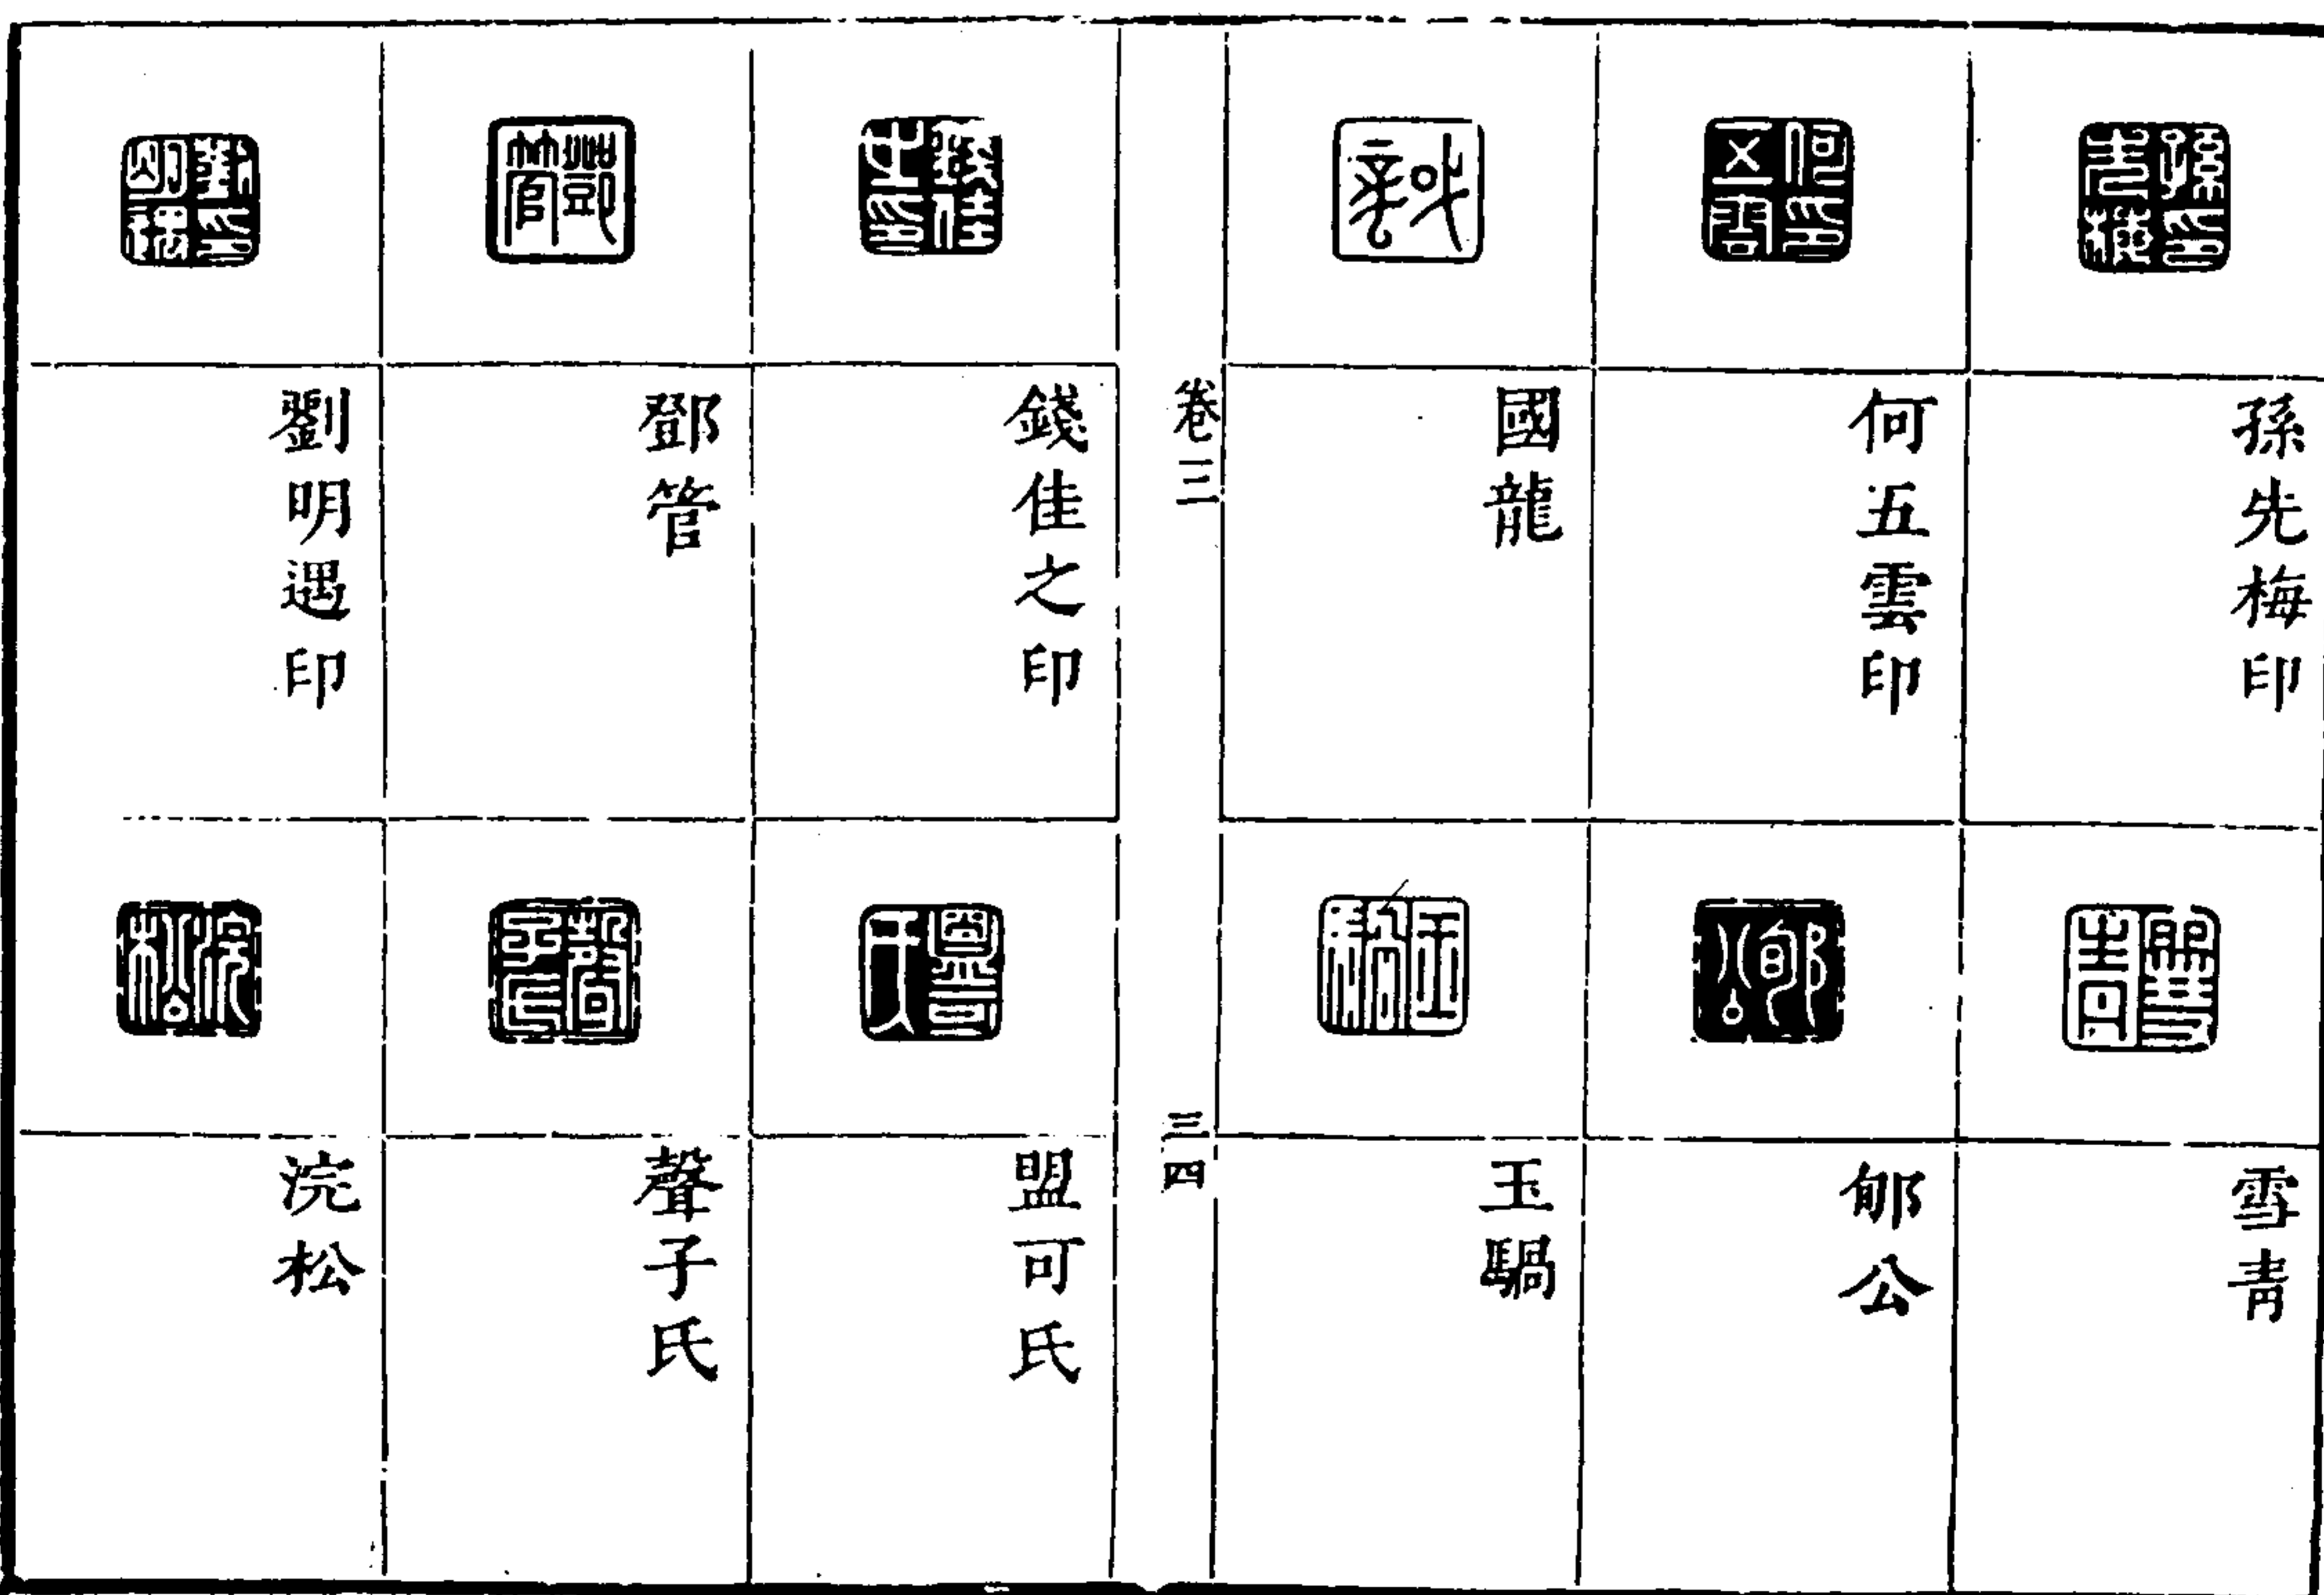 孫先梅印
雪青
何五雲印
郇公
國龍
玉騧
卷三
三四
錢佳之印
盟可氏
鄧管
聲子氏
劉明遇印
浣松